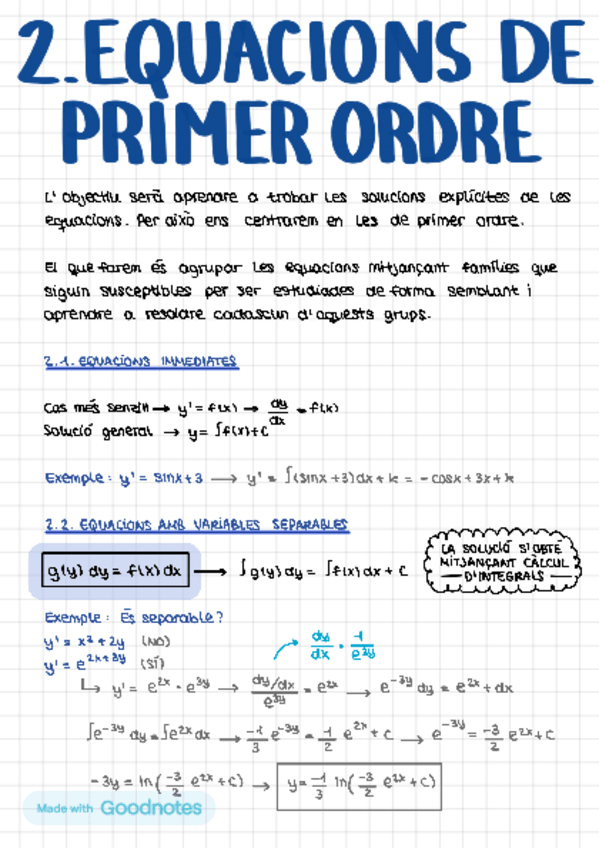 2. EQUACIONS DE
PRIMER ORDRE
L'objectiu serà aprendre a trobar les solucions explícites de les
equacions. Per això ens centrarem en les de primer ordre.
El que farem és agrupar les equacions mitjançant famílies que
siguin susceptibles per ser estudiades de forma semblant i
aprendre a resoldre cadascun d'aquests grups.
2.1. EQUACIONS IMMEDIATES
Cas més senzill → y' = f(x) → dy/dx = f(x)
Solució general → y = ∫f(x)+C
Exemple: y' = sinx+3 → y' = ∫(sinx+3)dx + k = -cosx + 3x + k
2.2. EQUACIONS AMB VARIABLES SEPARABLES
g(y) dy = f(x) dx → ∫g(y)dy = ∫f(x)dx + C
LA SOLUCIÓ S'OBTÉ
MITJANÇANT CÀLCUL
D'INTEGRALS
Exemple: És separable?
y' = x² + 2y (NO)
y' = e^{2x+3y} (SÍ)
dy/dx · 1/e^{3y}
↳ y' = e^{2x} · e^{3y} → (dy/dx)/e^{3y} = e^{2x} → e^{-3y} dy = e^{2x} + dx
∫e^{-3y} dy = ∫e^{2x} dx → -1/3 e^{-3y} = 1/2 e^{2x} + C → e^{-3y} = -3/2 e^{2x} + C
-3y = ln(-3/2 e^{2x} + C) → y = -1/3 ln(-3/2 e^{2x} + C)
Made with Goodnotes